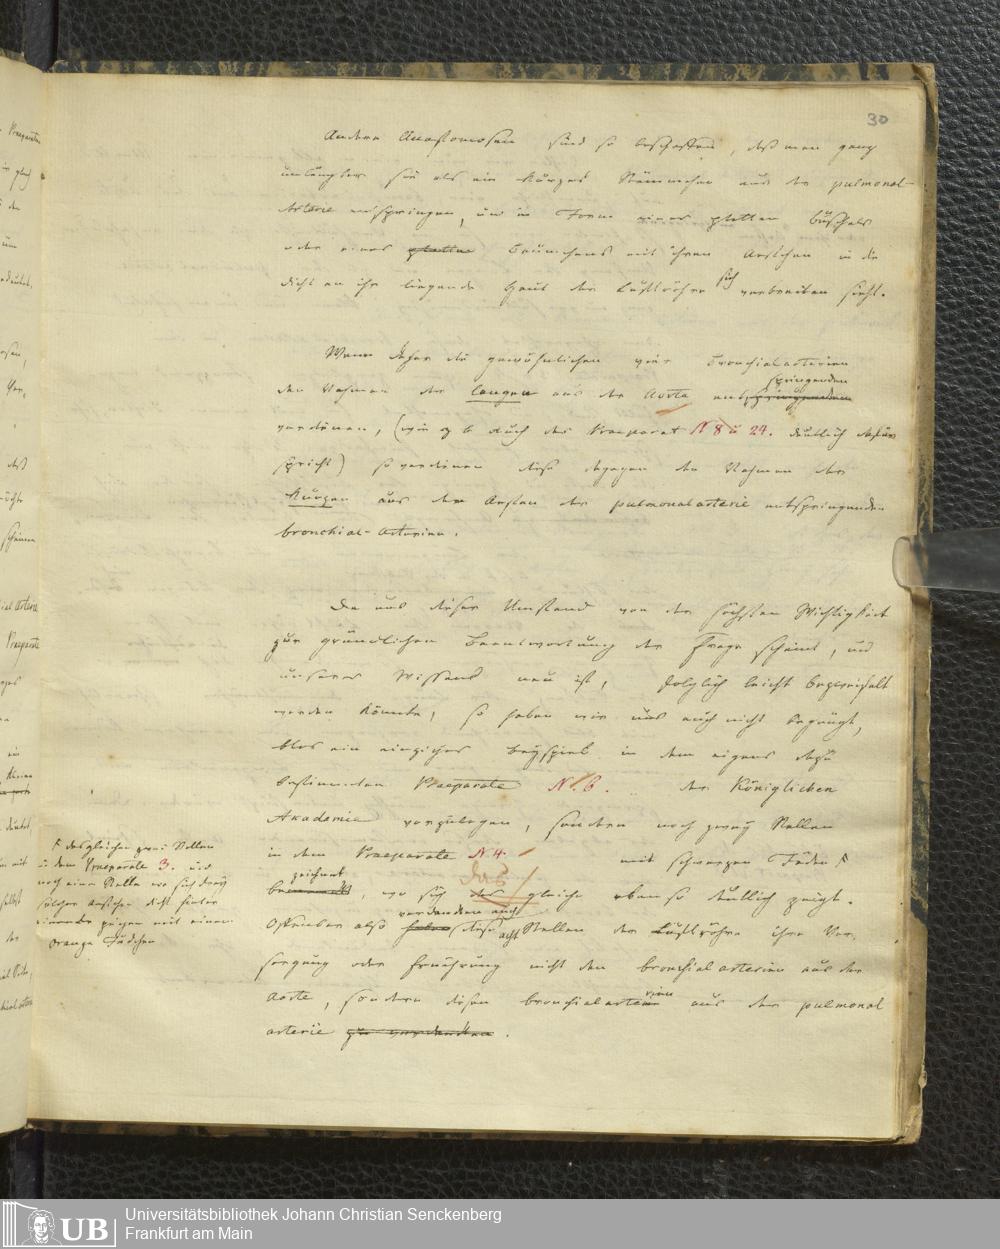 30
Andere Anastomosen sind so beschaffen, daß man ganz
unläugbar sie als ein kurzes Stämmchen aus der pulmonal-
Arterie entspringen, und in Form eines platten Büschels
oder eines platten Bäumchens mit ihren Aestchen in die
dicht an ihr liegende Haut der Luftröhre sich verbreiten sieht.
Wenn daher die gewöhnlichen vier Bronchialarterien
den Nahmen der langen aus der Aorta entspringenden springenden
verdienen, (wie z b auch das Praeparat N 8 u 24. deutlich dafür
spricht) so verdienen diese dagegen den Nahmen der
Kurzen aus den Aesten der pulmonalarterie entspringenden
bronchial-Arterien.
Da uns dieser Umstand von der höchsten Wichtigkeit
zur gründlichen Beantwortung der Frage scheint, und
unseres Wissens neu ist, folglich leicht bezweifelt
werden könnte, so haben wir uns auch nicht begnügt,
blos ein einziges Beyspiel in dem eigens dazu
bestimmten Praeparate N. 6. der Königlichen
Akademie vorzulegen, sondern noch zwey Stellen
in dem Praeparate N 4. mit schwarzen Fäden F
bezeichnet, wo sich das gleiche eben so deutlich zeigt.
Offenbar also haben verdanken auch diese acht Stellen der Luftröhre ihre Ver-
sorgung oder Ernährung nicht den bronchial arterien aus der
Aorte, sondern diesen bronchialarterien aus der pulmonal
arterie zu verdanken.
F desgleichen zwei Stellen
in dem Praeparate 3. und
noch eine Stelle wo sich drey
solcher Aestchen dicht hinter
einander zeigen mit einem
orange Fädchen
Universitätsbibliothek Johann Christian Senckenberg
Frankfurt am Main
UB